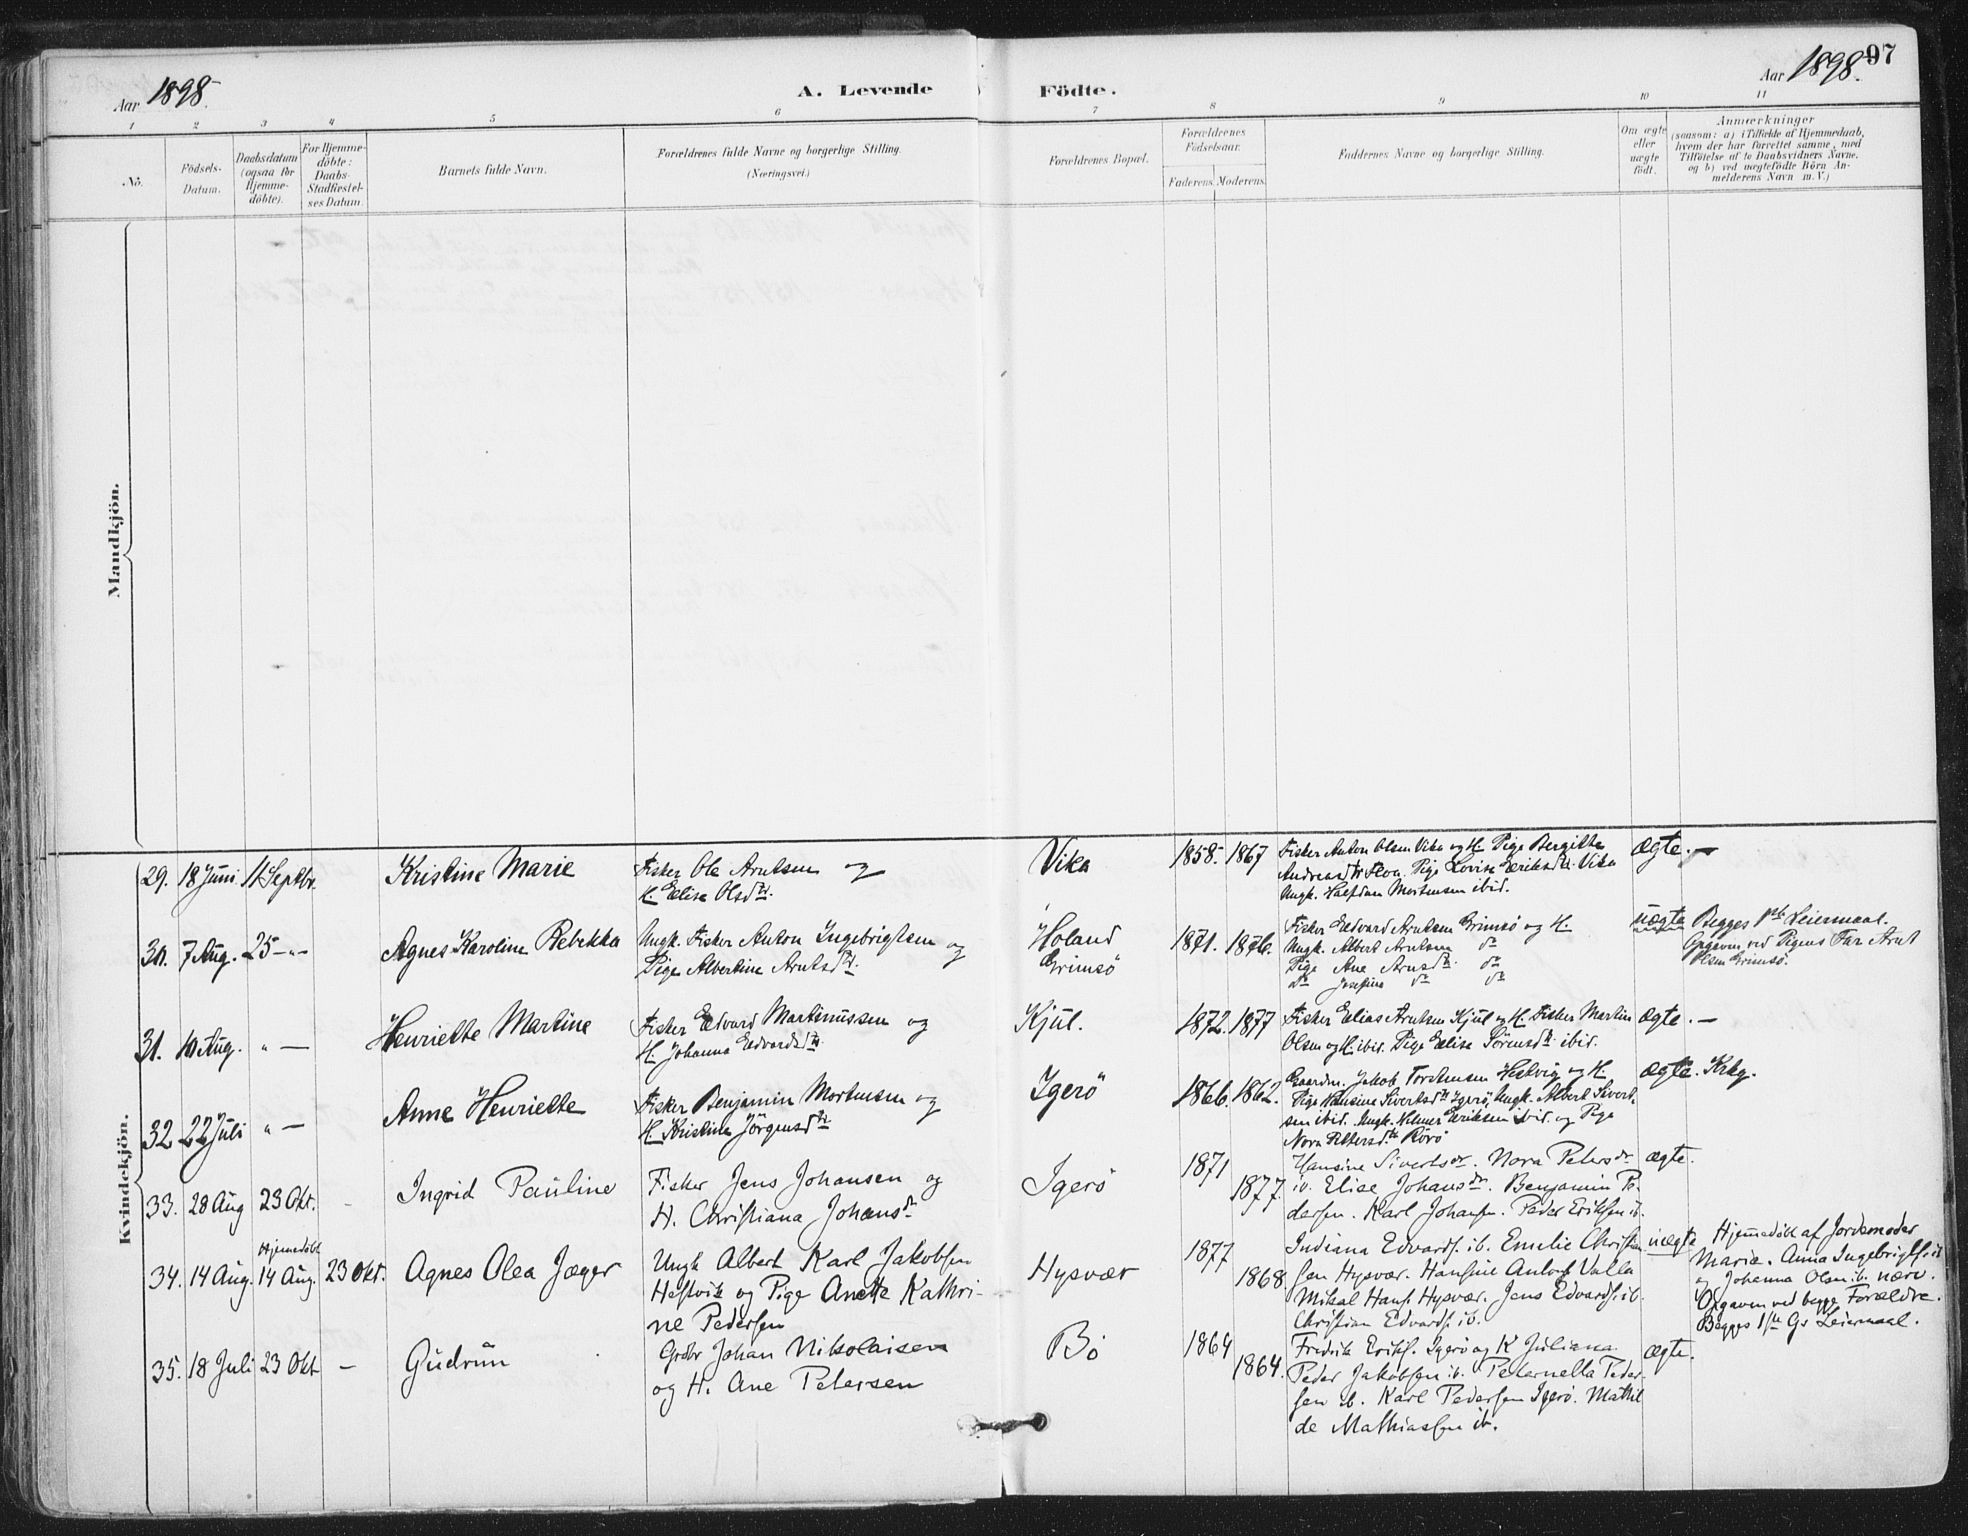 Aar 1898.
A. Levende Födte.
Aar 1898.
97
1 2 3 4 5 6 7 8 9 10 11
No.
Födsels-
Datum.
Daabsdatum
(ogsaa for
Hjemme-
döbte).
For Hjemme-
döbte:
Daabs-
Stadfæstel-
ses Datum.
Barnets fulde Navn.
Forældrenes fulde Navne og borgerlige Stilling.
(Næringsvei.)
Forældrenes Bopæl.
Forældrenes
Födselsaar.
Faderens. Moderens.
Faddernes Navne og borgerlige Stilling.
Om ægte
eller
uægte
födt.
Anmærkninger
(saasom: a) i Tilfælde af Hjemmedaab,
hvem der har forrettet samme, med
Tilföielse af to Daabsvidners Navne.
og b) ved uægtefödte Börn An-
melderens Navn m. V.)
Mandkjön.
Kvindekjön.
29. 18 Juni 11 Septbr. Kristine Marie
Fisker Ole Arntsen og
H. Elise Olsdtr.
Vika
1858. 1867
Fisker Anton Olsen Vika og H. Pige Bergitte
Andreasdtr Floa. Pige Lovise Eriksdtr. Vika
Ungk. Halfdan Mortensen ibid.
ægte. —
30. 7 Aug. 25 — „ — Agnes Karoline Rebekka
Ungk. Fisker Anton Ingebrigtsen og
Pige Albertine Arntsdtr.
Holand
Grimsö
1871. 1876.
Fisker Edvard Arntsen Grimsö og H.
Ungk. Albert Arntsen do
Pige Ane Arnsdtr. do
Do Josefine do do
uægte
Begges 1ste Leiermaal.
Opgaven ved Pigens Far Arnt
Olsen Grimsö.
31. 10 Aug. „ — Henriette Martine
Fisker Edvard Martinussen og
H. Johanna Edvardsdtr.
Kjul.
1872. 1877
Fisker Elias Arntsen Kjul og H. Fisker Martin
Olsen og H. ibid. Pige Elise Sörensdtr. ibid.
ægte. —
32 22 Juli „ — Anne Henriette
Fisker Benjamin Mortensen og
H. Kristine Jörgensdtr.
Igerö
1866. 1862.
Gaardm. Jakob Torstensen Hestvig og H.
Pige Hansine Sivertsdtr Igerö, Ungk. Albert Sivert-
sen ibid. Ungk. Helmer Eriksen ibid. og Pige
Nora Pettersdtr. Rörö
ægte. Krkg.
33. 28 Aug 23 Okt. - Ingrid Pauline
Fisker Jens Johansen og
H. Christiana Johansdr
Igerö
1871
1877.
Hansine Sivertsdr. Nora Petersdr
ib. Elise Johansdr. Benjamin Pe-
dersen. Karl Johansen. Peder Eriksen ib.
ægte.
34. 14 Aug. Hjemmedöbt 14 Aug. 23 Okt. Agnes Olea Jæger
Ungk Albert Karl Jakobsen
Hestvik og Pige Anette Kathri-
ne Pedersen
Hysvær
1877
1868.
Indiana Edvards. ib. Emelie Christian-
sen Hysvær. Hansine Antons Valla
Mikal Hans. Hysvær. Jens Edvards. ib.
Christian Edvards. ib.
uægte
Hjemmedöbt af Jordemoder
Maria. Anna Ingebrigts. ib
og Johanna Olsen ib. nærv.
Opgaven ved begge Forældre.
Begges 1ste Gs Leiermaal.
35. 18 Juli 23 Okt — Gudrun
Grdbr Johan Nikolaisen
og H. Ane Petersen
Bö
1864
1864.
Fredrik Eriks. Igerö og K Juliana.
Peder Jakobsen ib. Peternella Peder-
sen ib. Karl Pedersen Igerö. Mathil
de Mathiassen ib.
ægte.